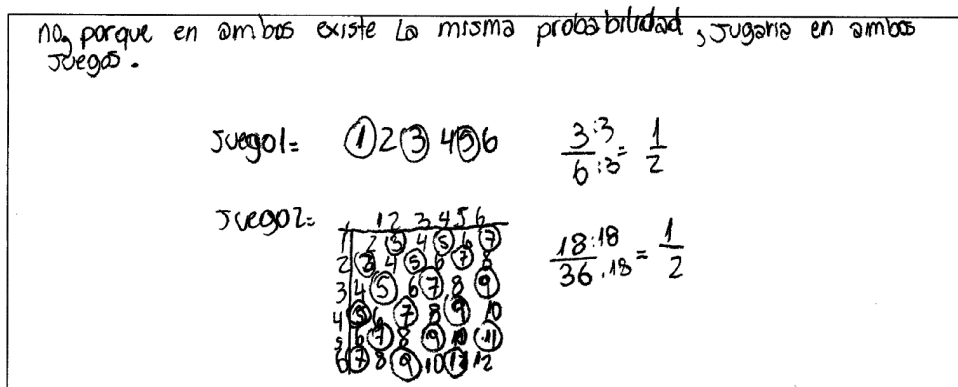 no, porque en ambos existe la misma probabilidad, jugaria en ambos
juegos.
juego1= 1 2 3 4 5 6 3:3/6:3 = 1/2
juego2= + 1 2 3 4 5 6
1 2 3 4 5 6 7
2 3 4 5 6 7 8
3 4 5 6 7 8 9
4 5 6 7 8 9 10
5 6 7 8 9 10 11
6 7 8 9 10 11 12
18:18/36:18 = 1/2